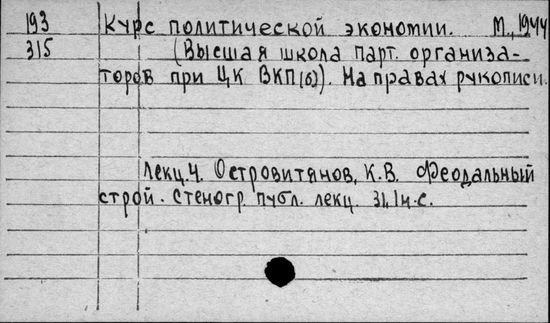 193 Курс политической экономии. М., 1944
315 (Высшая школа парт. организа-
торов при ЦК ВКП(б)). На правах рукописи.
Лекц. 4. Островитянов, К.В. Феодальный
строй. Стеногр. публ. лекц.